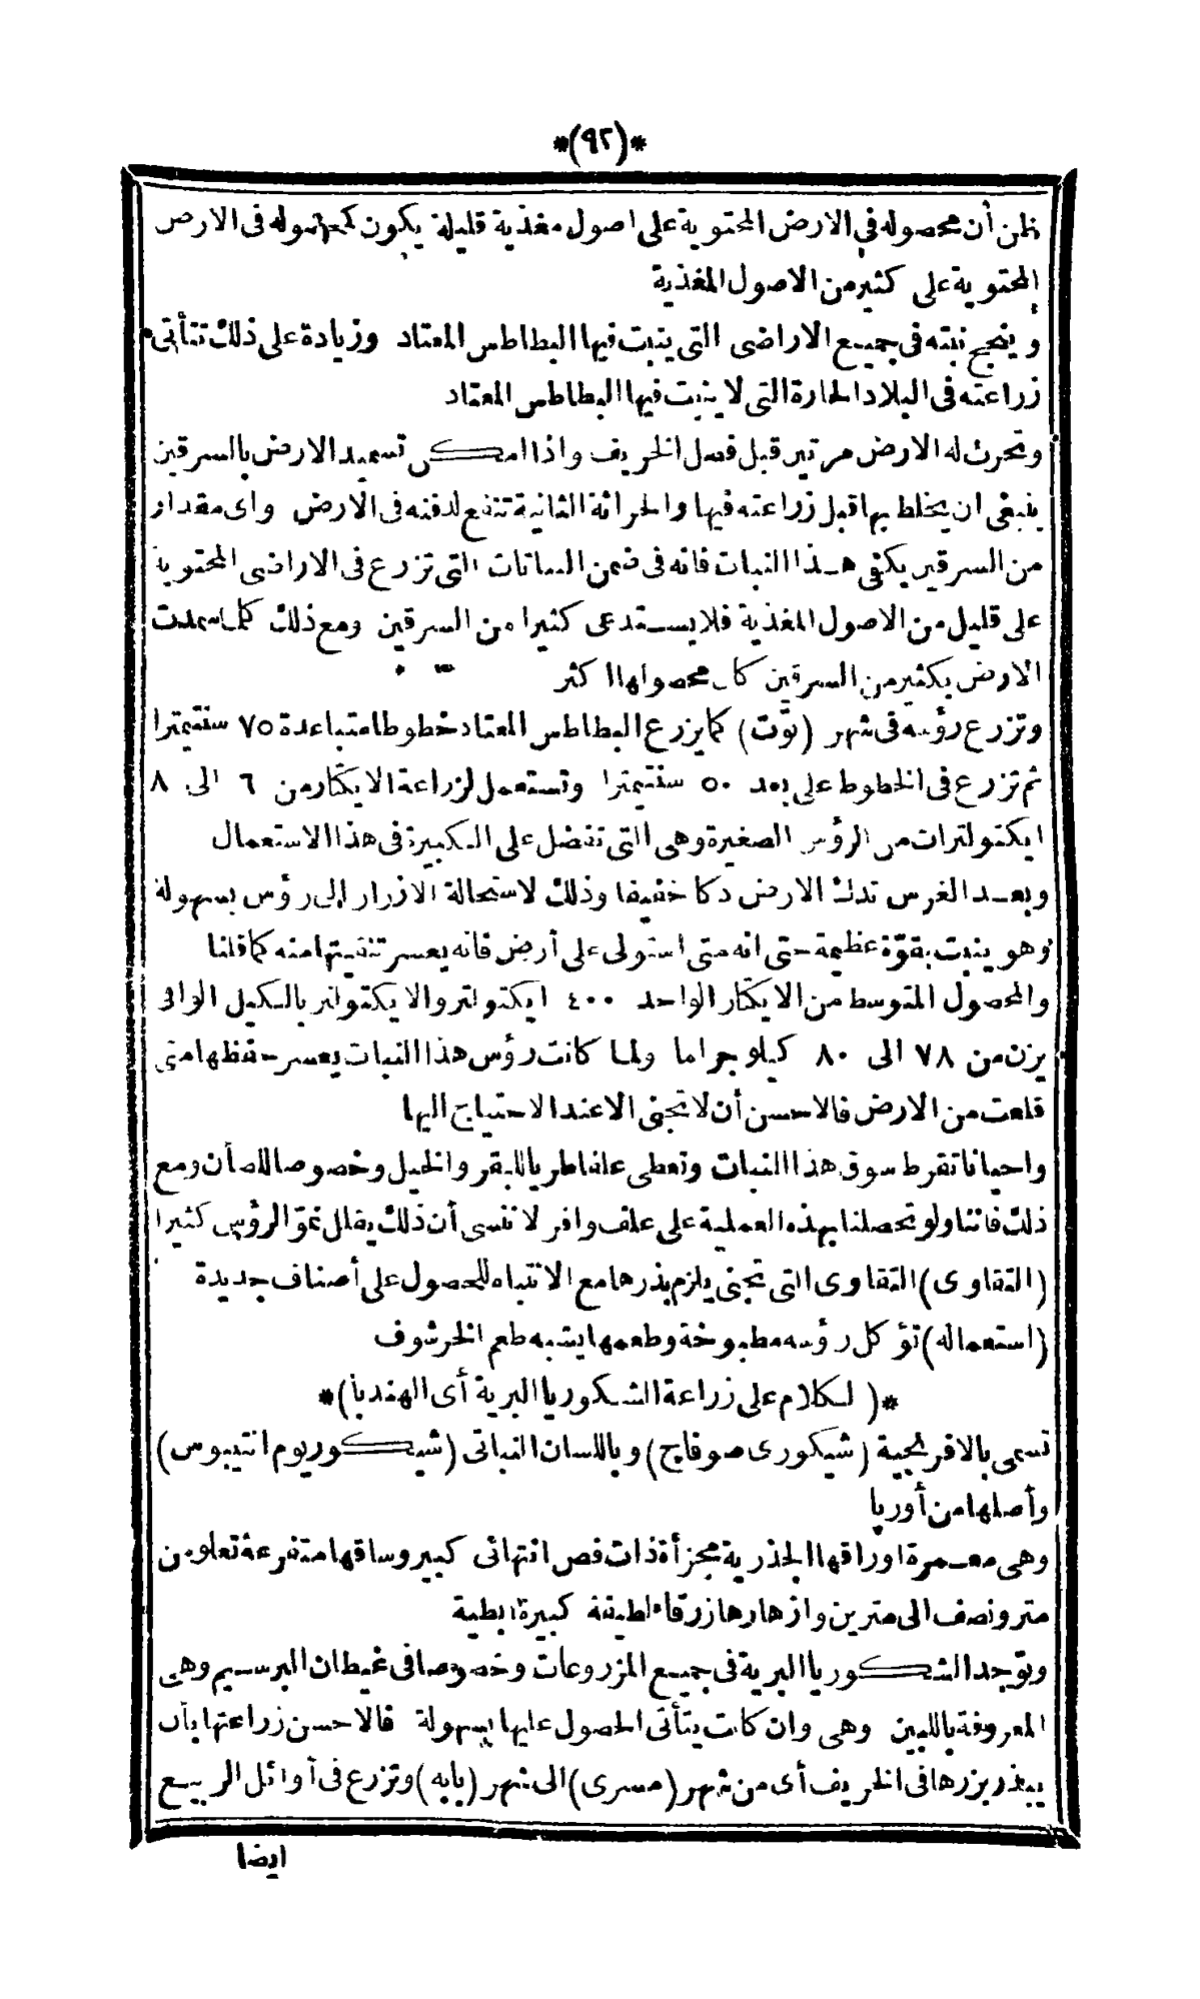 *(٩٢)*
ظن أن محصوله في الارض المحتوية على اصول مغذية قليلة يكون كمحصوله فى الارض
المحتوية على كثير من الاصول المغذية
وينجح نبته فى جميع الاراضى التى ينبت فيها البطاطس المعتاد وزيادة على ذلك تتأتى
زراعته فى البلاد الحارة التى لا ينبت فيها البطاطس المعتاد
وتحرث له الارض مرتين قبل فصل الخريف واذا امكن تسميد الارض بالسرقين
ينبغى ان يخلط بها قبل زراعته فيها والحراثة الثانية تنفع لدفنه فى الارض واى مقدار
من السرقين يكفى هذا النبات فانه فى ضمن النباتات التى تزرع فى الاراضى المحتوية
على قليل من الاصول المغذية فلا يستدعى كثيرا من السرقين ومع ذلك كلما سمدت
الارض بكثير من السرقين كان محصولها اكثر
وتزرع رؤسه فى شهر (توت) كما يزرع البطاطس المعتاد خطوطا متباعدة ٧٥ سنتيمترا
ثم تزرع فى الخطوط على بعد ٥٠ سنتيمترا وتستعمل لزراعة الايكتار من ٦ الى ٨
ايكتولترات من الرؤس الصغيرة وهى التى تفضل على الكبيرة فى هذا الاستعمال
وبعد الغرس تدك الارض دكا خفيفا وذلك لاستحالة الازرار الى رؤس بسهولة
وهو ينبت بقوّة عظيمة حتى انه متى استولى على أرض فانه يعسر تنقيتها منه كما قلنا
والمحصول المتوسط من الايكتار الواحد ٤٠٠ ايكتولتر والايكتولتر بالكيل الوافى
يزن من ٧٨ الى ٨٠ كيلوجراما ولما كانت رؤس هذا النبات يعسر حفظها متى
قلعت من الارض فالاحسن أن لا تجنى الا عند الاحتياج اليها
واحيانا تقرط سوق هذا النبات وتعطى علفا طريا للبقر والخيل وخصوصا للضأن ومع
ذلك فاننا ولو تحصلنا بهذه العملية على علف وافر لا ننسى أن ذلك يقلل نموّ الرؤس كثيرا
(التقاوى) التقاوى التى تجنى يلزم بذرها مع الانتباه للحصول على أصناف جديدة
(استعماله) تؤكل رؤسه مطبوخة وطعمها يشبه طعم الخرشوف
*(الكلام على زراعة الشكوريا البرية أى الهندبا)*
تسمى بالافرنجية (شيكورى صوفاج) وباللسان النباتى (شيكوريوم انتيبوس)
وأصلها من أوربا
وهى معمرة اوراقها الجذرية مجزأة ذات فص انتهائى كبير وساقها متفرعة تعلو من
متر ونصف الى مترين وازهارها زرقاء لطيفة كبيرة ابطية
وتوجد الشكوريا البرية فى جميع المزروعات وخصوصا فى غيطان البرسيم وهى
المعروفة باللبين وهى وان كانت يتأتى الحصول عليها بسهولة فالاحسن زراعتها بأن
يبذر بزرها فى الخريف أى من شهر (مسرى) الى شهر (بابه) وتزرع فى أوائل الربيع
ايضا